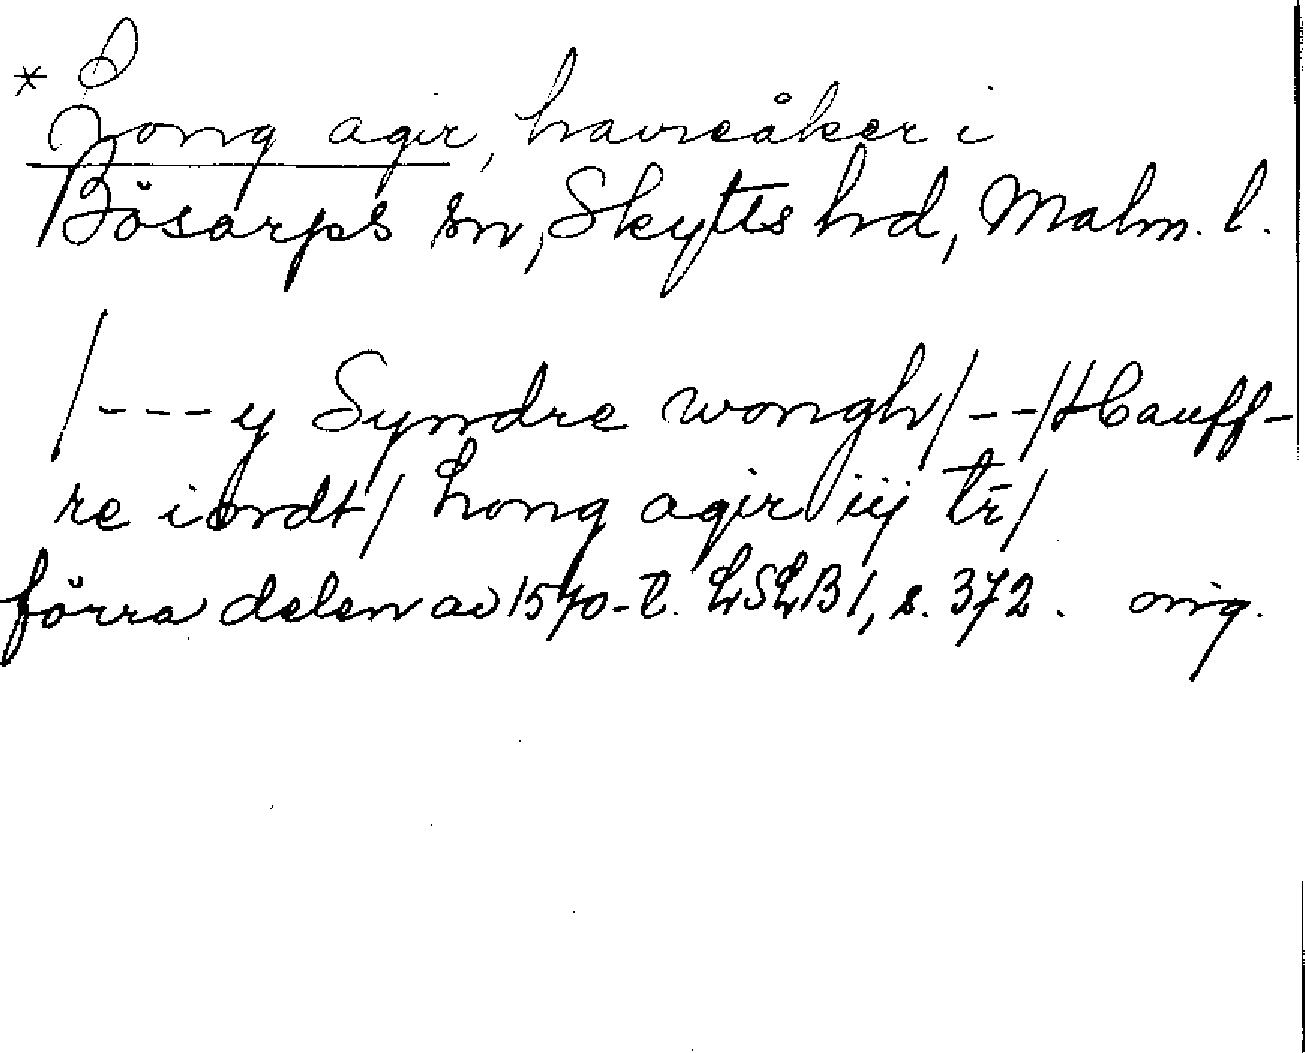 * Long agir, havreåker i
Bösarps sn, Skytts hd, Malm. l.
/---y Syndre wongh/--/Hauff-
re iordt/ Long agir iij tr̄/
förra delen av 1570-t. LSLB 1, s. 372. orig.